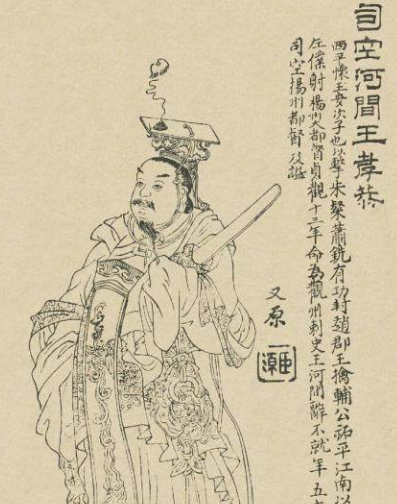 司空河間王孝恭
西平懷王安次子也以擊朱粲蕭銑有功封趙郡王擒輔公祏平江南以
左僕射楊州大都督貞觀十二年命為觀州刺史王河間辭不就年五
司空揚州都督及諡
又原
臣源